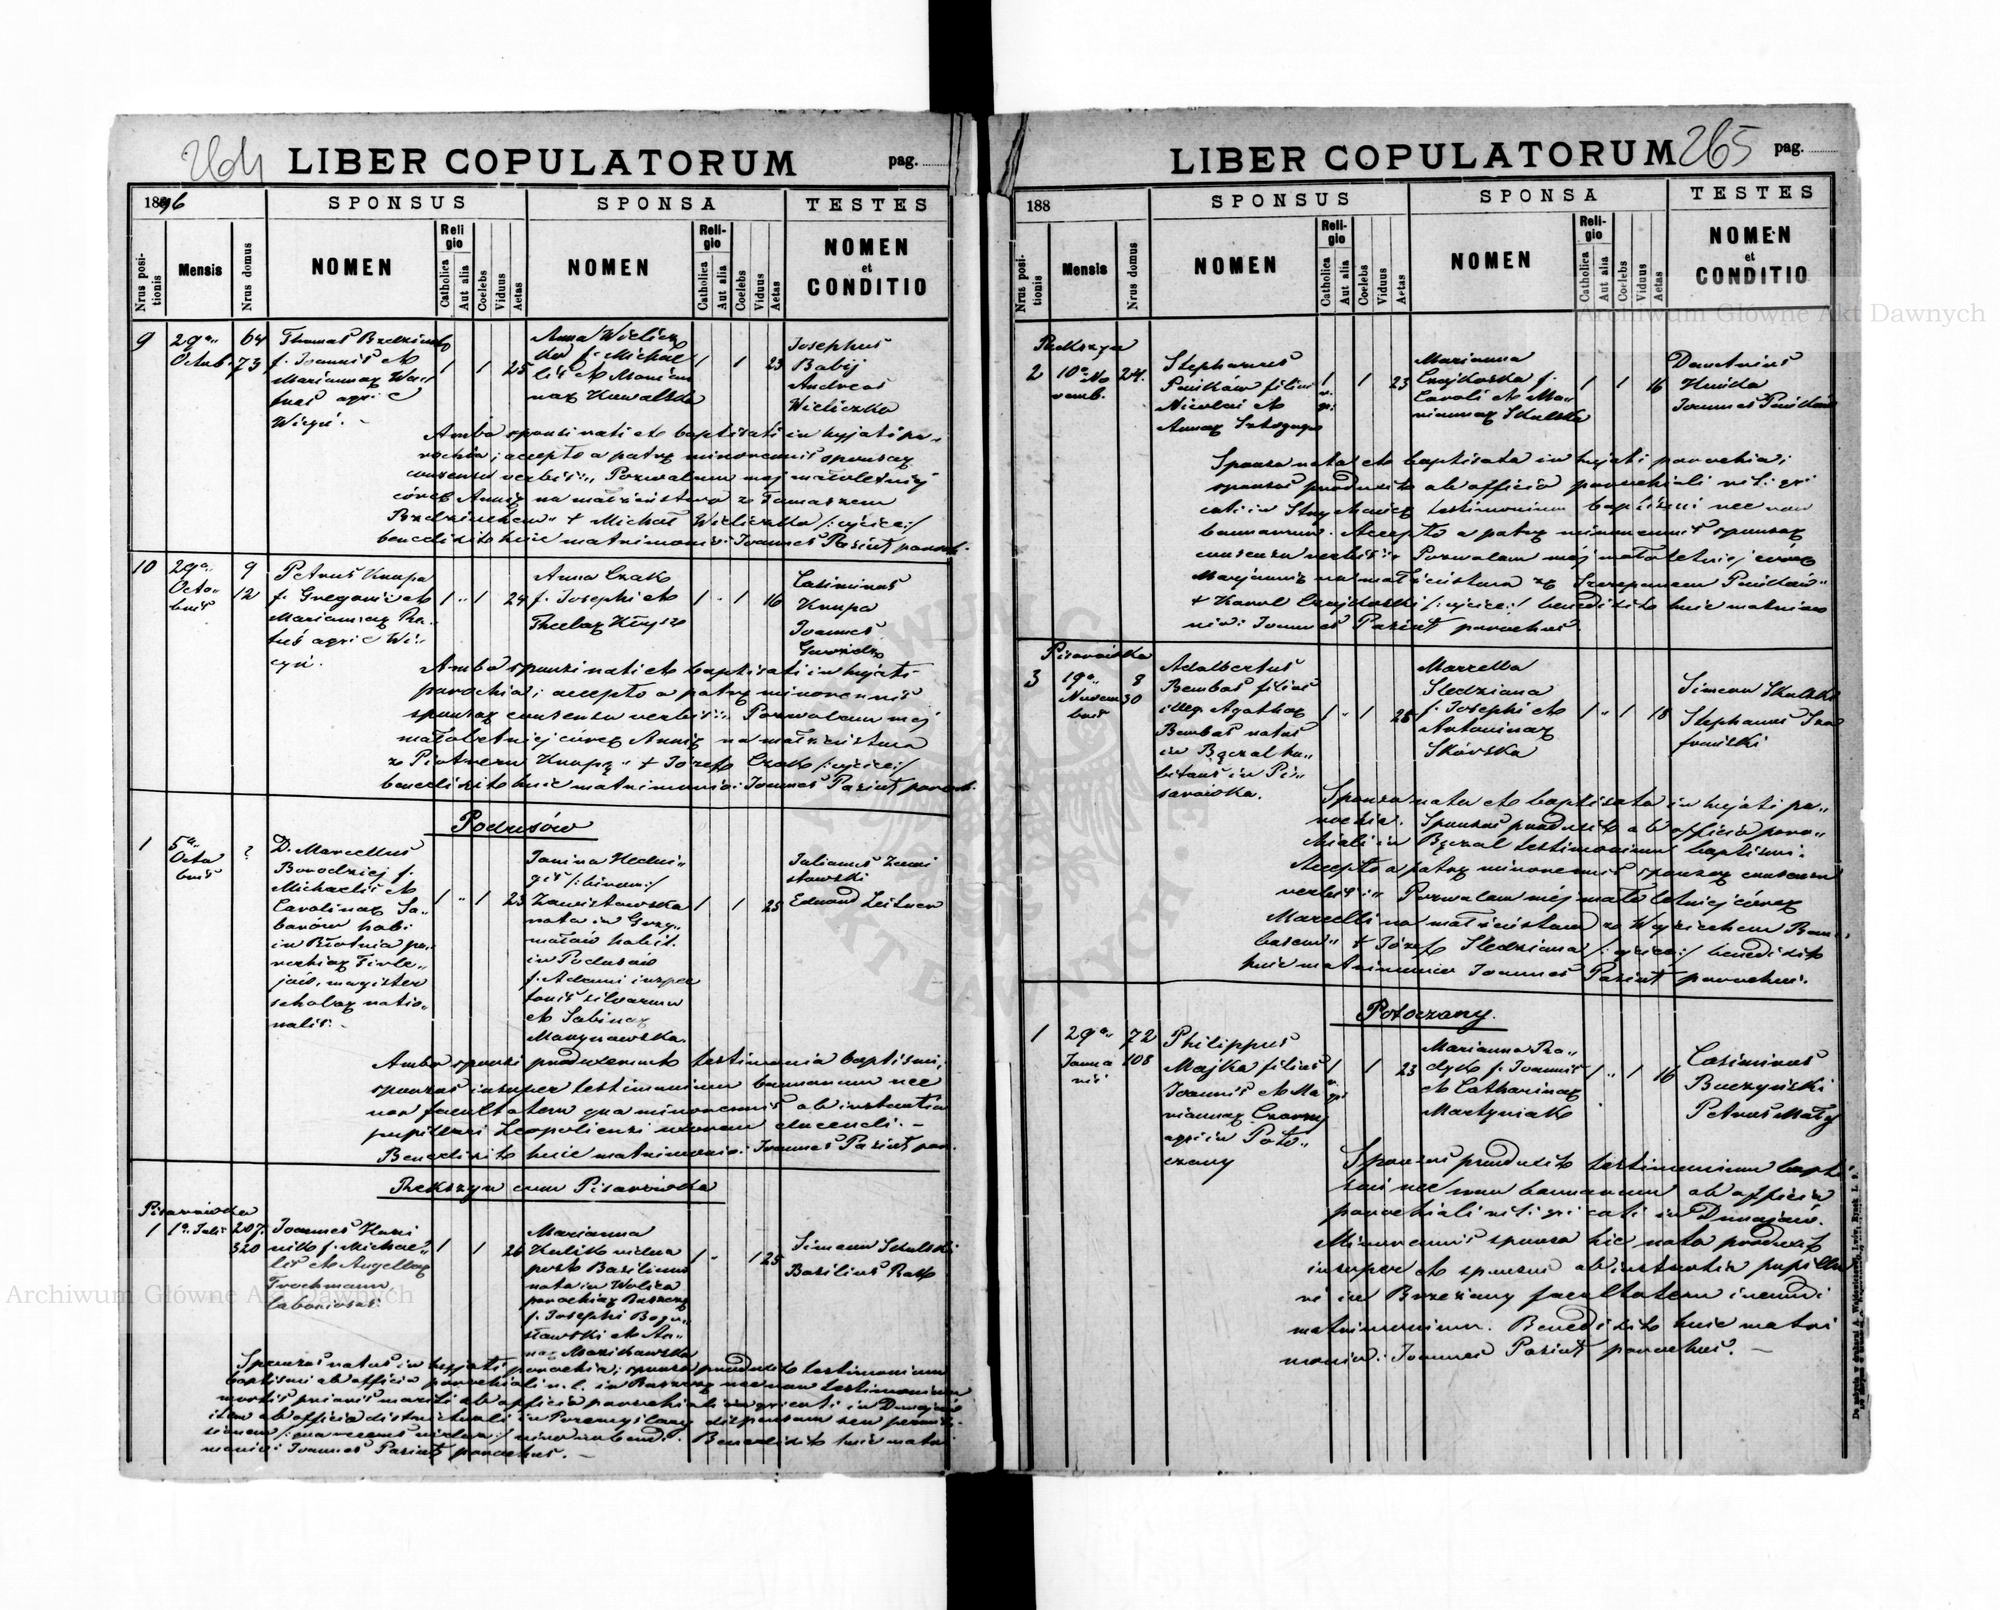 264 LIBER COPULATORUM pag.
1896 SPONSUS SPONSA TESTES
Nrus positionis Mensis Nrus domus NOMEN Religio Catholica Aut alia Coelebs Viduus Aetas NOMEN Religio Catholica Aut alia Coelebs Viduus Aetas NOMEN et CONDITIO
9 29a Octob. 64 73
f. Joannis et
Mariannae
1 1 25
Anna Wielicz
ka f. Michae
lis et Marian
nae Kowalska
1 1 23
Josephus
Babij
Andreas
Wieliczka
Ambo sponsi nati et baptisati in hyjati pa-
rochia; accepto a patre minorennis sponsae
consensu verbis: „Pozwalam mej małoletniej
córce Annie na małżeństwo z Tomaszem
+ Michał Wieliczka /:ojciec:/
benedixit huic matrimonio: Joannes Pasiut paroch.
10 29a Octo-bris 9 12
Petrus Knapa
f. Gregorii et
Mariannae
1 " 1 24
Anna Czak
f. Josephi et
Theclae
1 - 1 16
Casimirus
Knapa
Joannes
Ambo sponsi nati et baptisati in hyjati
parochia; accepto a patre minorennis
sponsae consensu verbis: „Pozwalam mej
małoletniej córce Annie na małżeństwo
z Piotrem Knapą" + Józef Czak /:ojciec:/
benedixit huic matrimonio: Joannes Pasiut paroch.
Podusów
1 5ta Octo bris ?
D. Marcellus
Borodziej f.
Michaelis et
Carolinae
habi.
in Błotnia pa-
rochiae Firle-
jów, magister
scholae natio-
nalis. -
1 " 1 23
Janina Hedvi-
gis /:binom:/
Zawistowska
nata in Grzy-
małów habit.
in Podusów
f. Adami inspec
toris silvarum
et Sabinae
1 1 25
Julianus Zawi
stowski
Eduard Leitner
Ambo sponsi produxerunt testimonia baptismi,
sponsus insuper testimonium bannorum nec
non facultatem qua minorennis ab instantia
pupillari Leopoliensi uxorem ducendi. -
Benedixit huic matrimonio: Joannes Pasiut par.
Rekszyn cum Pisarówka
Pisarówka
1 1a Julii 207. 320
f. Michae-
lis et Angellae
Trochmann
laboriosus.
1 1 26
Marianna
Kulik vidua
post Basilium
nata in Wolica
parochiae
f. Josephi Bogu-
sławski et An-
nae
1 - 1 25
Simeon Skulski
Basilius
Sponsus natus in hyjati parochia; sponsa produxit testimonium
baptismi ab officio parochiali r. l. in nec non testimonium
mortis prioris mariti ab officio parochiali in Dunajów
item ab officio districtuali in Przemyślany dispensam seu permis-
sionem
monio: Joannes Pasiut parochus. -
LIBER COPULATORUM 265 pag.
188 SPONSUS SPONSA TESTES
Nrus positionis Mensis Nrus domus NOMEN Religio Catholica Aut alia Coelebs Viduus Aetas NOMEN Religio Catholica Aut alia Coelebs Viduus Aetas NOMEN et CONDITIO
Rekszyn
2 10a No vemb. 24.
Stephanus
filius
Nicolai et
Annae
1 r. gr. 1 23
Marianna
Czajkoska f.
Caroli et Ma-
riannae Skulska
1 1 16
Demetrius
Joannes
Sponsa nata et baptisata in hyjati parochia;
sponsus produxit ab officio parochiali rit. gr
cat. in testimonium baptismi nec non
bannorum. Accepto a patre minorennis sponsae
consensu verbis: „Pozwalam mej małoletniej córce
Mariannie na małżeństwo ze Szczepanem
+ Karol Czajkoski /:ojciec:/ benedixit huic matrimo
nio: Joannes Pasiut parochus.
Pisarówka
3 19a Novem bris 8 30
Adalbertus
Bembas filius
illeg. Agathae
Bembas natus
in Bączal ha-
bitans in Pi-
sarówka.
1 " 1 28
Marzella
Śledziana
f. Josephi et
Antoninae
Skórska
1 " 1 18
Simeon Skulski
Stephanus
Sponsa nata et baptisata in hyjati pa-
rochia. Sponsus produxit ab officio paro-
chiali in Bączal testimonium baptismi.
Accepto a patre minorennis sponsae consensu
verbis: „Pozwalam mej małoletniej córce
Marcelli na małżeństwo z Wojciechem Bem-
basem" + Józef Śledziana /:ojciec:/ benedixit
huic matrimonio Joannes Pasiut parochus.
Potoczany.
1 29a Janua rii 72 108
Philippus
Majka filius
Joannis et Ma
riannae Czarny
agri in Poto-
czany
1 r. gr 1 23
Marianna
f. Joannis
et Catharinae
Martyniak
1 " 1 16
Casimirus
Buczyński
Petrus Mały
Sponsus produxit testimonium bapti
smi nec non bannorum ab officio
parochiali rit. gr cat. in Dunajów.
Minorennis sponsa hic nata produxit
insuper et sponsus ab instantia pupilla
ri in Brzeżany facultatem ineundi
matrimonium. Benedixit huic matri
monio: Joannes Pasiut parochus. -
Archiwum Główne Akt Dawnych
Archiwum Główne Akt Dawnych